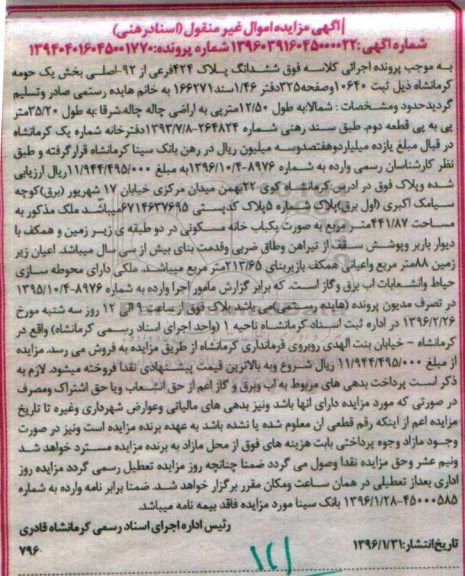 آگهی مزایده اموال غیر منقول (اسناد رهنی)
شماره آگهی: ۱۳۹۶۰۳۹۱۶۰۴۵۰۰۰۰۲۲ شماره پرونده: ۱۳۹۴۰۴۰۱۶۰۴۵۰۰۱۷۷۰
به موجب پرونده اجرائی کلاسه فوق ششدانگ پلاک ۴۲۴ فرعی از ۹۲-اصلی بخش یک حومه
کرمانشاه ذیل ثبت ۱۰۶۴۰ وصفحه ۳۲۵ دفتر ۱/۴۶ سند ۱۶۶۲۷۱ به خانم هایده رستمی صادر وتسلیم
گردیدحدود ومشخصات : شمالا:به طول ۱۲/۵۰ مترپی به اراضی چاله چاله.شرقا به طول ۳۵/۲۰ متر
پی به پی قطعه دوم. طبق سند رهنی شماره ۲۶۴۸۲۴-۱۳۹۳/۷/۸ دفترخانه شماره یک کرمانشاه
در قبال مبلغ یازده میلیاردوهفتصدوسه میلیون ریال در رهن بانک سینا کرمانشاه قرارگرفته و طبق
نظر کارشناسان رسمی وارده به شماره ۸۹۷۶-۱۳۹۶/۱۰/۴ به مبلغ ۱۱/۹۴۴/۴۹۵/۰۰۰ ریال ارزیابی
شده وپلاک فوق در ادرس کرمانشاه کوی ۲۲بهمن میدان مرکزی خیابان ۱۷ شهریور (برق)کوچه
سیامک اکبری (اول برق)پلاک شماره ۵پلاک کدپستی ۶۷۱۴۶۳۷۶۹۵ میباشد ملک مذکور به
مساحت ۴۴۱/۸۷ متر مربع به صورت یکباب خانه مسکونی در دو طبقه ی زیر زمین و همکف با
دیوار باربر وپوشش سقف از تیراهن وطاق ضربی وقدمت بنای بیش از سی سال میباشد اعیان زیر
زمین ۸۸متر مربع واعیانی همکف بازیربنای ۲۱۳/۶۵ متر مربع میباشد. ملکی دارای محوطه سازی
حیاط وانشعابات اب برق وگاز است. که برابر گزارش مامور اجرا وارده به شماره ۸۹۷۶-۱۳۹۵/۱۰/۴
در تصرف مدیون پرونده (هایده رستمی)می باشد پلاک فوق از ساعت ۹ الی ۱۲ روز سه شنبه مورخ
۱۳۹۶/۲/۲۶ در اداره ثبت اسناد کرمانشاه ناحیه ۱ (واحد اجرای اسناد رسمی کرمانشاه) واقع در
کرمانشاه - خیابان بنت الهدی روبروی فرمانداری کرمانشاه از طریق مزایده به فروش می رسد. مزایده
از مبلغ ۱۱/۹۴۴/۴۹۵/۰۰۰ ریال شروع وبه بالاترین قیمت پیشنهادی نقدا فروخته میشود. لازم به
ذکر است پرداخت بدهی های مربوط به آب وبرق و گاز اعم از حق انشعاب ویا حق اشتراک ومصرف
در صورتی که مورد مزایده دارای انها باشد ونیز بدهی های مالیاتی وعوارض شهرداری وغیره تا تاریخ
مزایده اعم از اینکه رقم قطعی ان معلوم شده یا نشده باشد به عهده برنده مزایده است ونیز در صورت
وجود مازاد وجوه پرداختی بابت هزینه های فوق از محل مازاد به برنده مزایده مسترد خواهد شد
ونیم عشر وحق مزایده نقدا وصول می گردد ضمنا چنانچه روز مزایده تعطیل رسمی گردد مزایده روز
اداری بعداز تعطیلی در همان ساعت ومکان مقرر برگزار خواهد شد. ضمنا برابر نامه وارده به شماره
۴۵۰۰۰۵۸۵-۱۳۹۶/۱/۲۸ بانک سینا مورد مزایده فاقد بیمه نامه میباشد.
رئیس اداره اجرای اسناد رسمی کرمانشاه قادری
تاریخ انتشار: ۱۳۹۶/۱/۳۱
۷۹۶